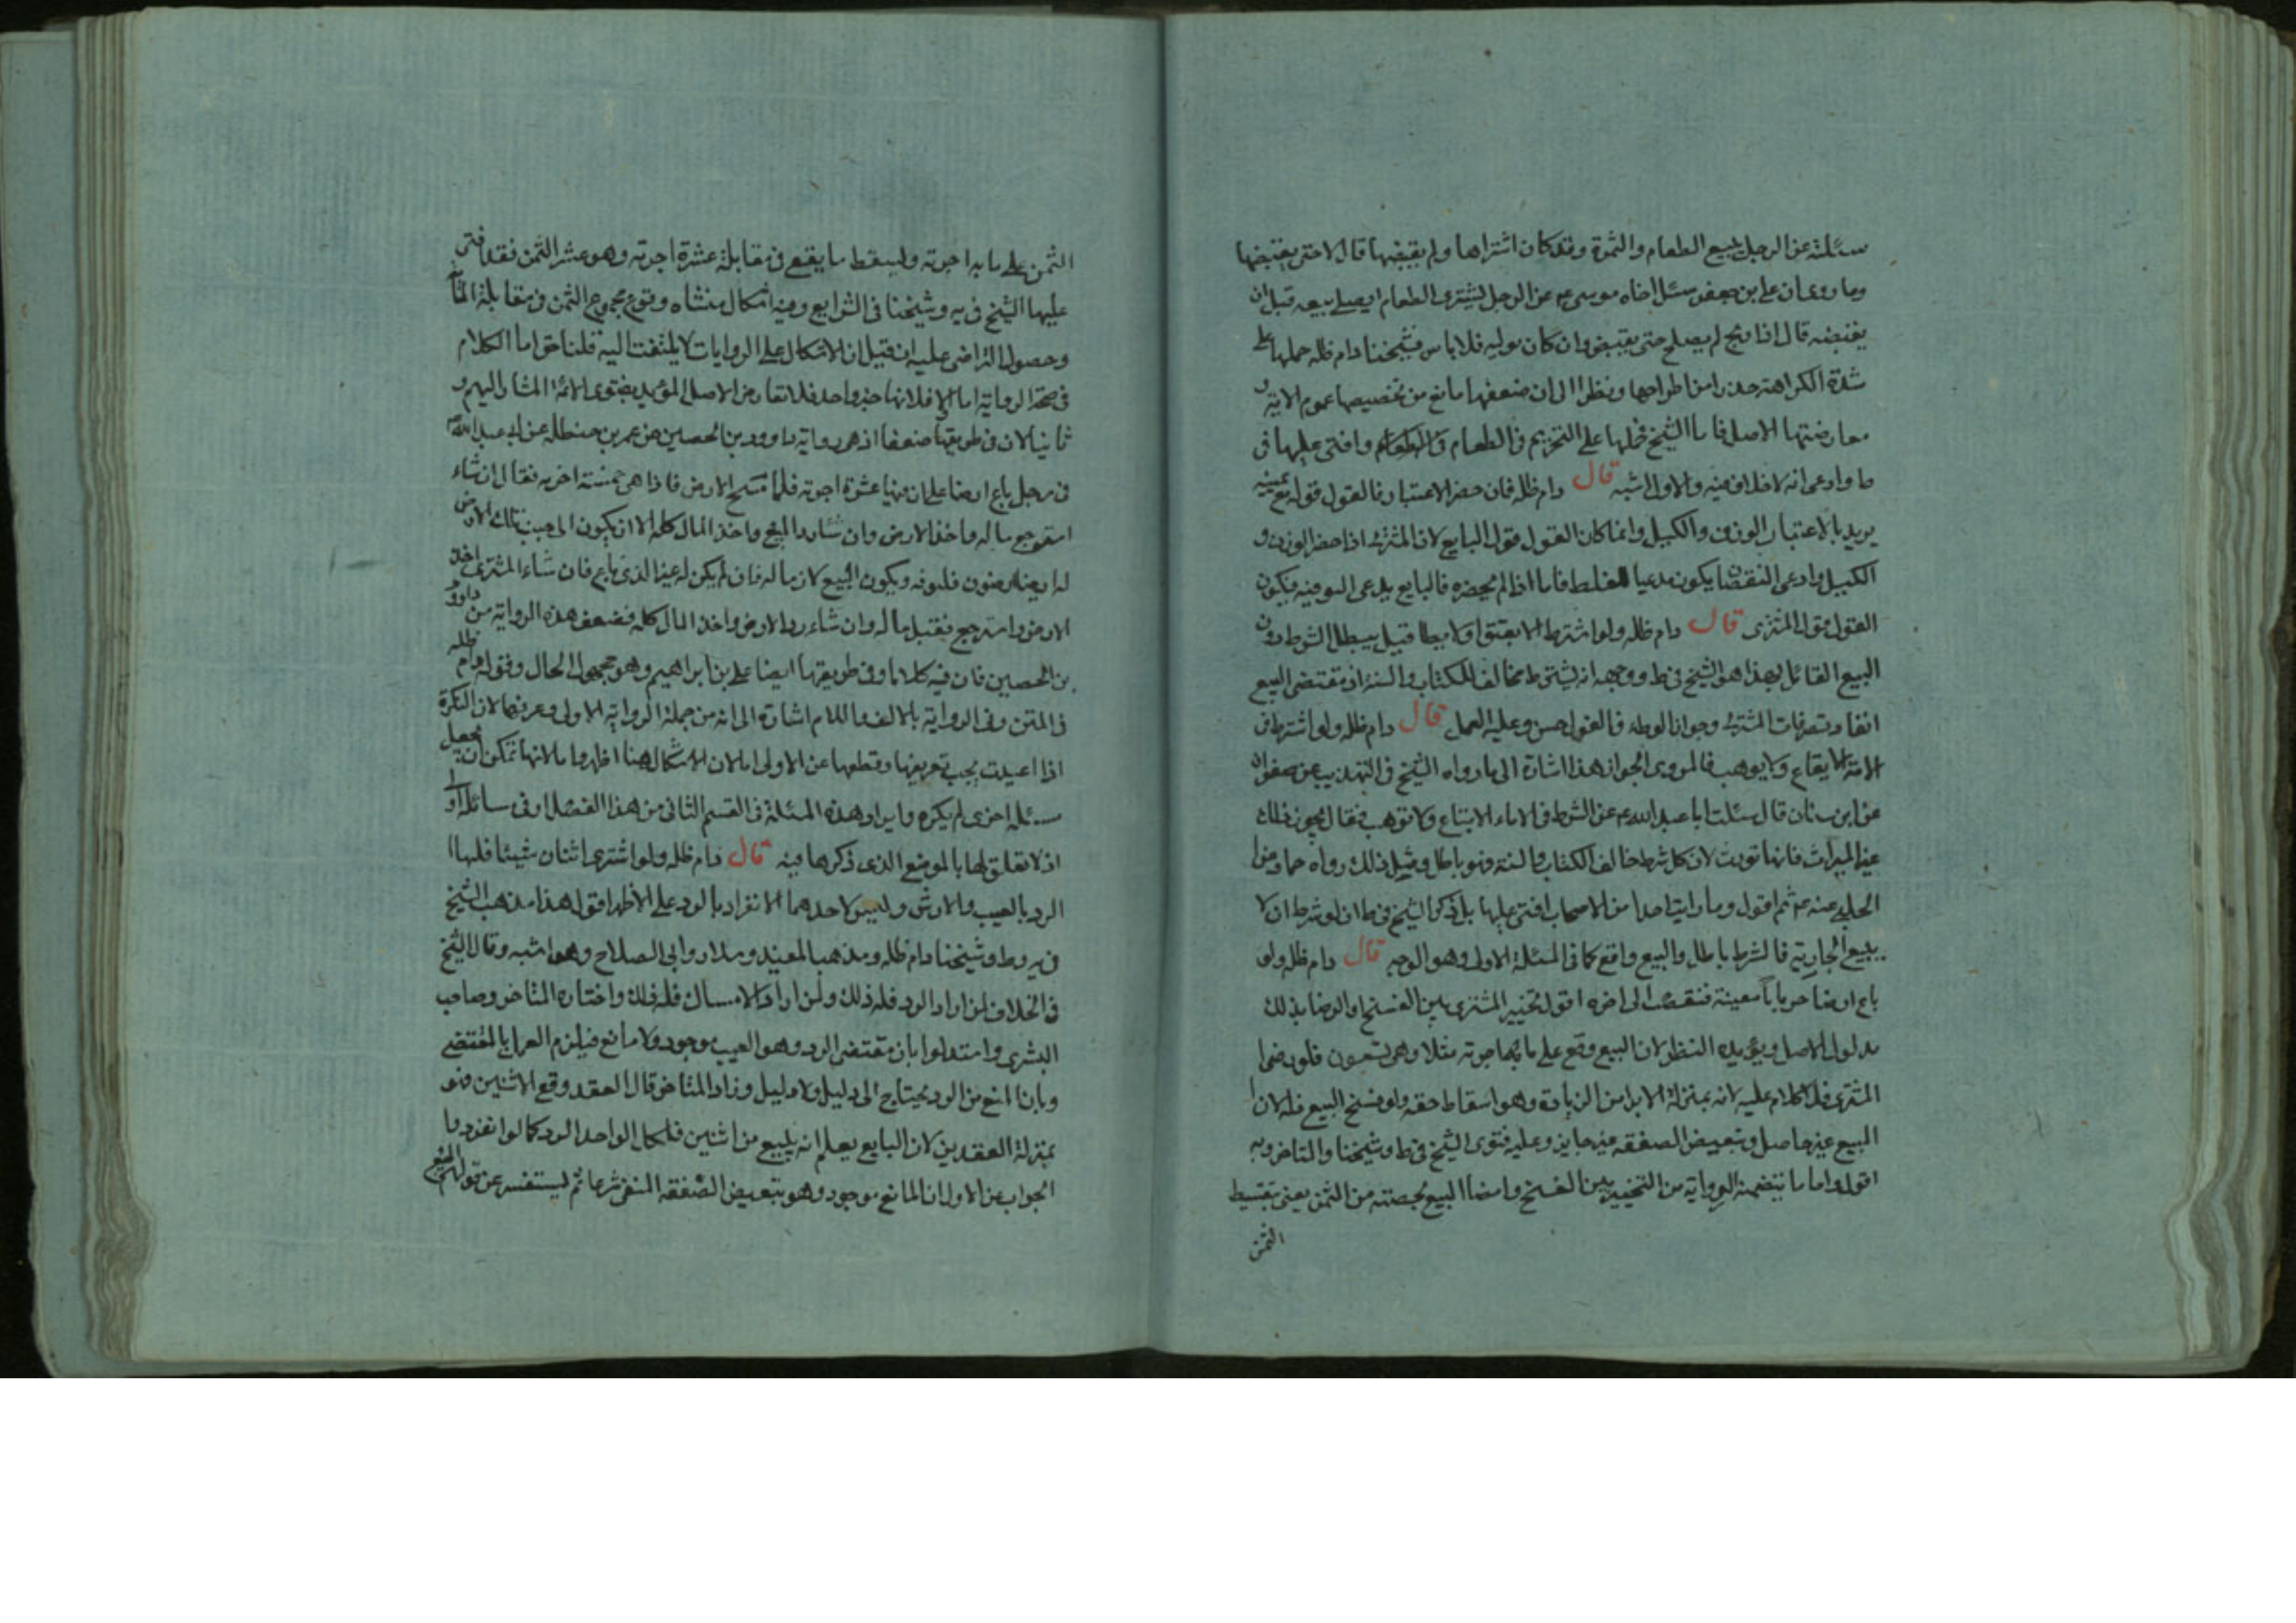 سئلته عن الرجل يبيع الطعام والثمرة وقد كان اشتراها ولم يقبضها قال لا حتى يقبضها
وما روى ان على بن جعفر سئل اخاه موسى ع عن الرجل يشترى الطعام ايصلح بيعه قبل ان
يقبضه قال اذا ربح لم يصلح حتى يقبض وان كان يوليه فلا باس فشيخنا دام ظله حملها على
شدة الكراهته حذرا من اطراحها ونظرا الى ان ضعفها مانع من تخصيصها عموم الايه و
معارضتها الاصل فاما الشيخ فحملها على التحريم فى الطعام وافتى عليها فى
ط وادعى انه لا خلاف فيه والاول اشبه قال دام ظله فان حضر الاعتبار فالقول قوله مع يمينه
يريد بالاعتبار الوزن والكيل وانما كان القول قول البايع لان المشترى اذا حضر الوزن و
الكيل وادعى النقصان يكون مدعيا للغلط فاما اذا لم يحضره فالبايع يدعى التوفيه فيكون
القول قول المشترى قال دام ظله ولو اشترط الا يعتق او لا يطا قيل يبطل الشرط دون
البيع القائل بهذا هو الشيخ فى ط ووجهه انه يشترط مخالف للكتاب والسنه اذ مقتضى البيع
انفاد تصرفات المشترى وجواز الوطء فالقول حسن وعليه العمل قال دام ظله ولو اشترط فى
الامة الا يقاع ولا يوهب فالمروى الجواز هذا اشارة الى ما رواه الشيخ فى التهذيب عن صفوان
عن ابن سنان قال سئلت ابا عبد الله ع عن الشرط فى الاماء لا تباع ولا توهب فقال يجوز ذلك
غير الميراث فانها تورث لان كل شرط خالف الكتاب والسنه فهو باطل ومثل ذلك رواه حماد عن
الحلبى عنه ع ثم اقول وما رايت احدا من الاصحاب افتى عليها بل ذكر الشيخ فى ط ان لو شرط ان لا
يبيع الجاريه فالشرط باطل والبيع واقع كما فى المسئلة الاولى وهو الوجه قال دام ظله ولو
باع ارضا جربانا معينة فنقصت الى اخره اقول تخيير المشترى بين الفسخ او الرضا بذلك
مدلول الاصل ويؤيده النظر لان البيع وقع على مائة اجربه مثلا وهى تسعون فلو رضى
المشترى فلا كلام عليه لانه بمنزلة الابرا من الزيادة وهو اسقاط حقه ولو فسخ البيع فله لان
المبيع غير حاصل وتبعيض الصفقه غير جايز وعليه فتوى الشيخ فى ط وشيخنا والمتاخر وبه
اقول واما ما تتضمنه الروايه من التخيير بين الفسخ وامضا البيع بحصته من الثمن يعنى بتقسيط
الثمن
الثمن على مايه اجربه ويسقط ما يقع فى مقابلة عشرة اجربه وهو عشر الثمن فقد افتى
عليها الشيخ فى يه وشيخنا فى الشرايع وفيه اشكال منشاه وقوع مجموع الثمن فى مقابلة
وحصول التراضى عليه ان قيل ان الاشكال على الروايات لا يلتفت اليه قلنا حق اما الكلام
فى صحة الروايه اما اولا فلانها خبر واحد فلا تعارض الاصل المؤيد بفتوى الائمة المشار اليهم و
ثانيا لان فى طريقها ضعفا اذ هى رواية داوود بن الحصين عن عمر بن حنظله عن ابى عبد الله ع
فى رجل باع ارضا على ان فيها عشرة اجربه فلما مسح الارض فاذا هى خمسة اجربه فقال ان شاء
استرجع ماله واخذ الارض وان شاء رد المبيع واخذ المال كله الا ان يكون الى جنب تلك الارض
له ايضا ارضون فليوفه ويكون البيع لازما له فان لم يكن له غير الذى باع فان شاء المشترى اخذ
الارض واسترجع بقيه ماله وان شاء رد الارض واخذ المال كله فضعف هذه الروايه من داود
بن الحصين فان فيه كلاما وفى طريقها ايضا على بن ابراهيم وهو مجهول الحال وقوله دام ظله
فى المتن وفى الروايه بالالف واللام اشارة الى انه من جملة الروايه الاولى وعرفها لان النكرة
اذا اعيدت يجب تعريفها وقطعها عن الاولى اما لان الاشكال هنا اظهر واما لانها تمكن ان تجعل
مسئله اخرى لم يكره وايراد هذه المسئلة فى القسم الثانى من هذا الفصل اوفى
اذ لا تعلق لها بالموضع الذى ذكرها فيه قال دام ظله ولو اشترى اثنان شيئا فلهما
الرد بالعيب والارش وليس لاحدهما الانفراد بالرد على الاظهر اقول هذا مذهب الشيخ
فى يه وط وشيخنا دام ظله ومذهب المفيد وسلار وابى الصلاح وهو اشبه وقال الشيخ
فى الخلاف لمن اراد الرد فله ذلك ولمن اراد الامساك فله ذلك واختاره المتاخر وصاحب
البشرى واستدلوا بان مقتضى الرد وهو العيب موجود ولا مانع فيلزم العمل بالمقتضى
وبان المنع من الرد يحتاج الى دليل ولا دليل وزاد المتاخر قال العقد وقع لاثنين فهو
بمنزلة العقدين لان البايع يعلم انه يبيع من اثنين فلكل الواحد الرد كما لو انفرد
الجواب عن الاول ان المانع موجود وهو تبعيض الصفقه المنفى شرعا ثم ليستفسر عن قولهم المبيع